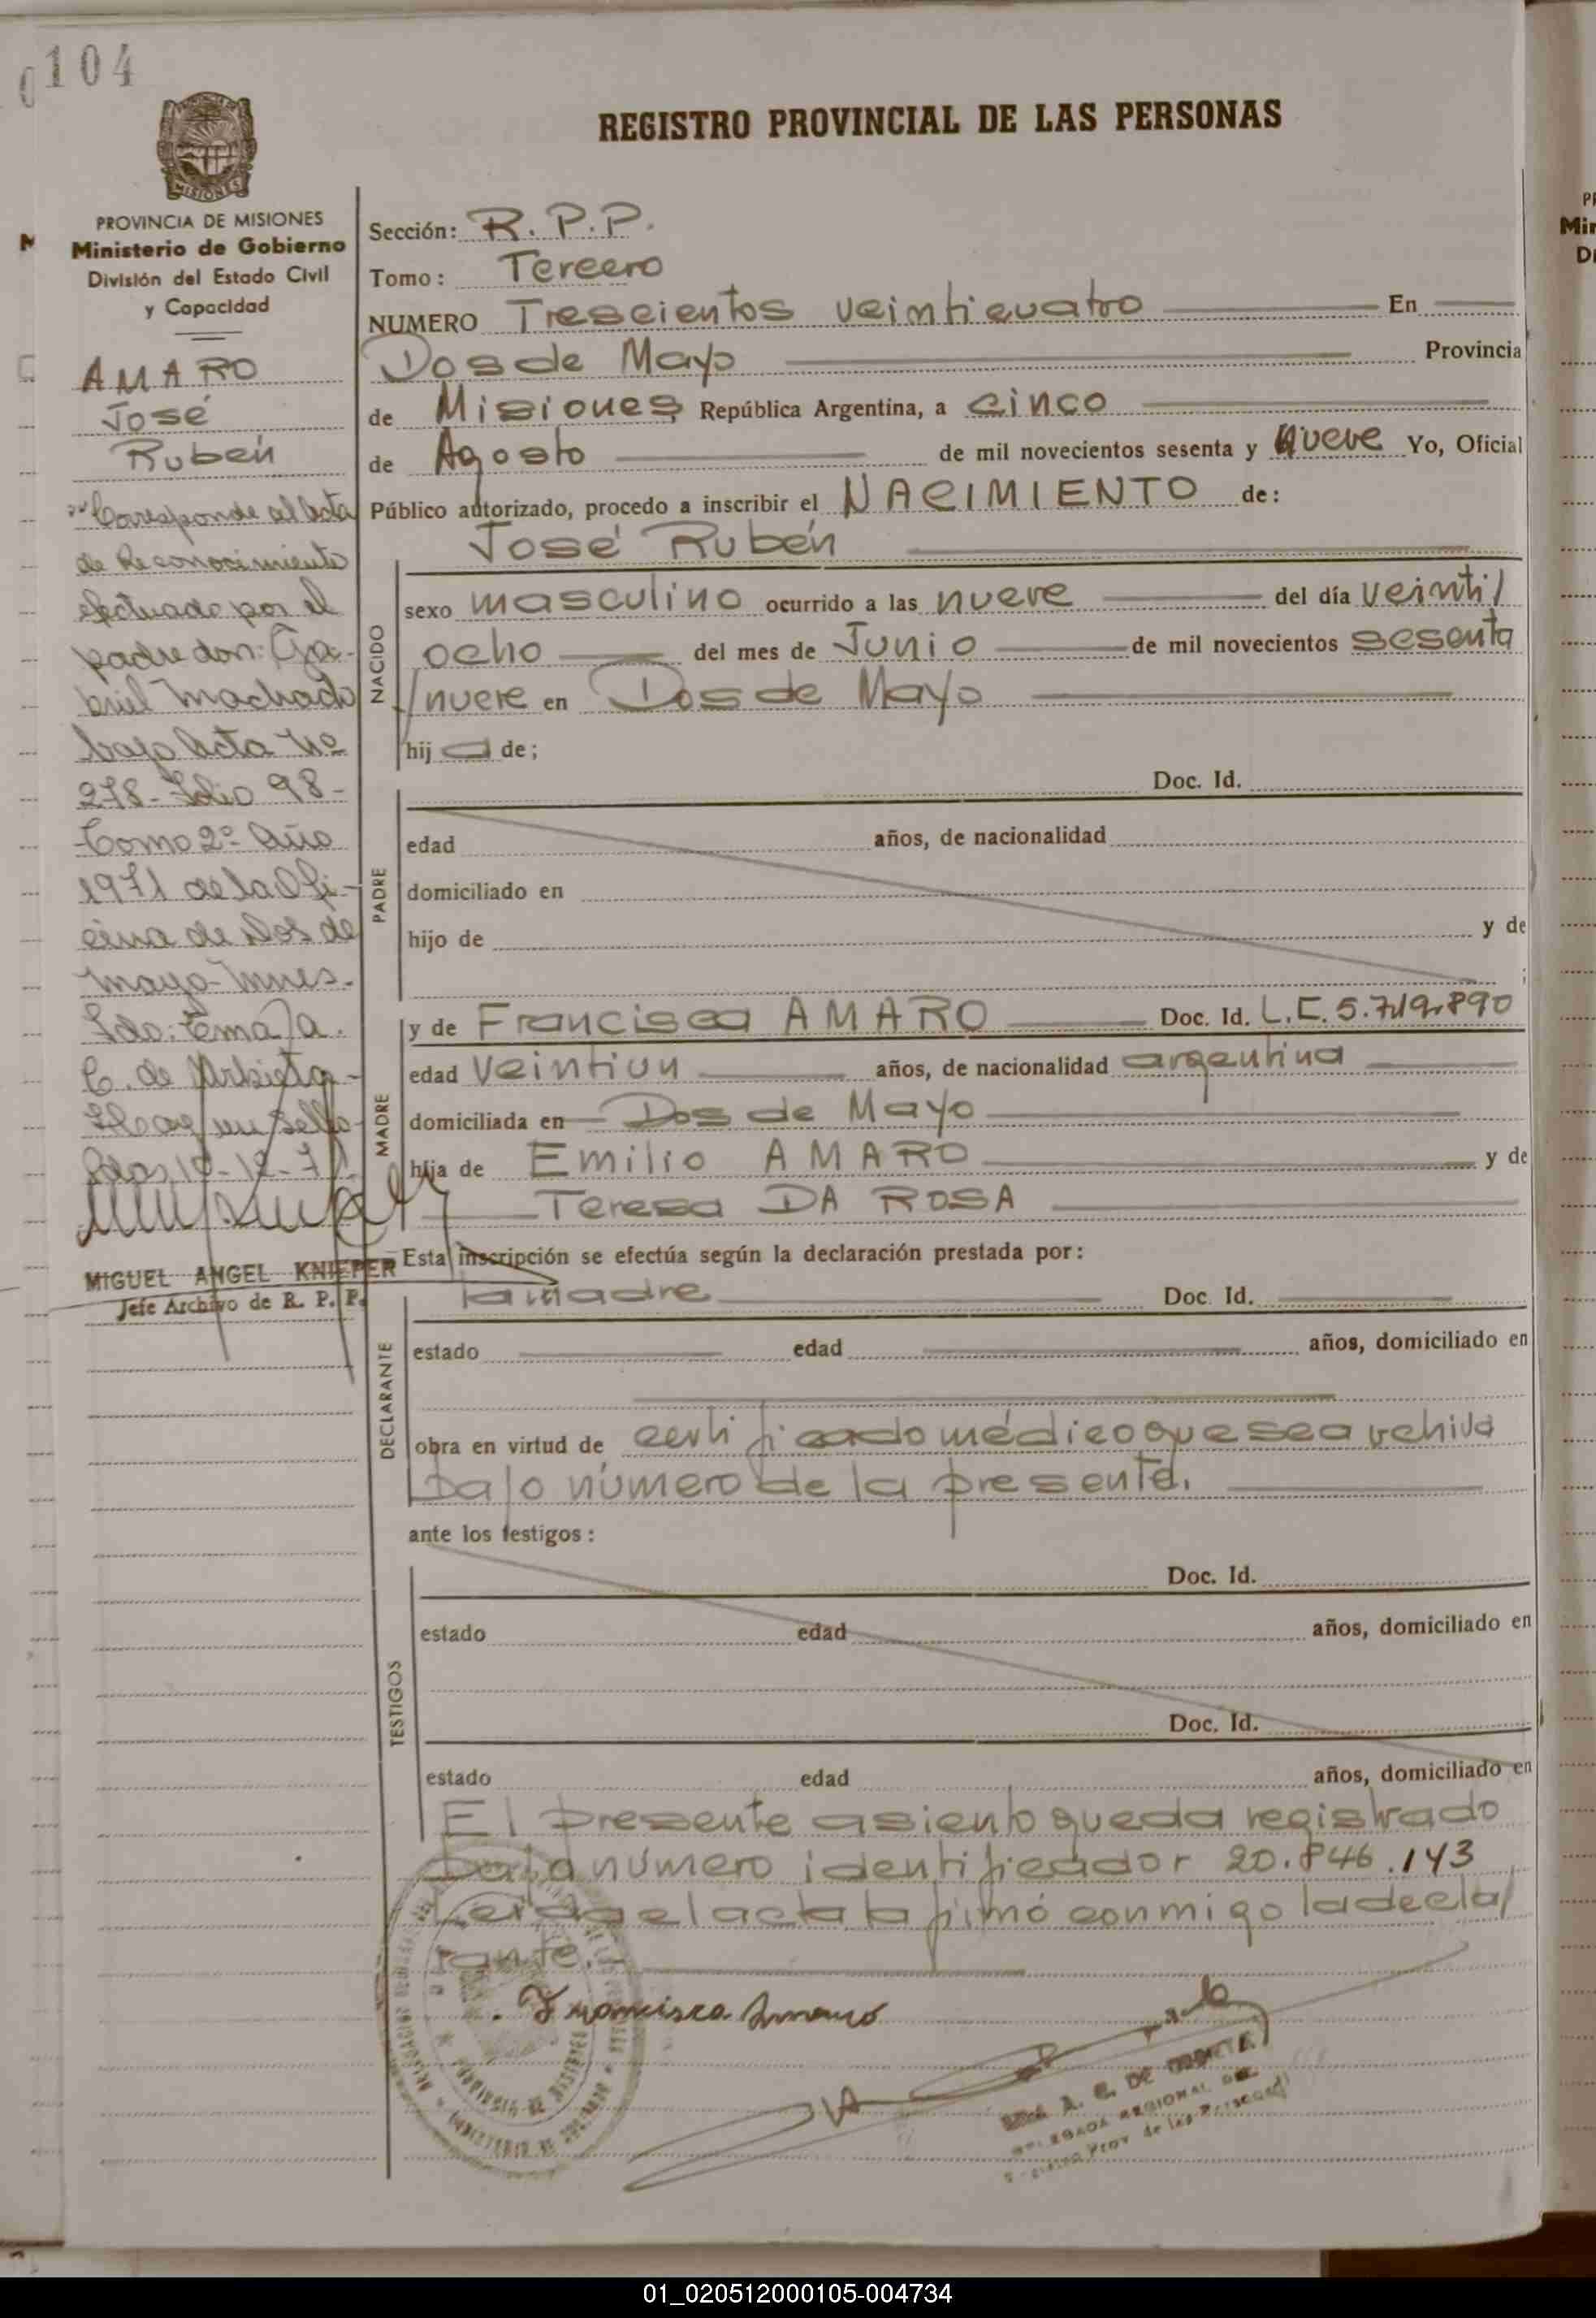 0104
REGISTRO PROVINCIAL DE LAS PERSONAS
MISIONES
PROVINCIA DE MISIONES
Ministerio de Gobierno
División del Estado Civil
y Capacidad
AMARO
José
Rubén
Corresponde al Acta
de Reconocimiento
efectuado por el
padre don: Ga-
briel Machado
bajo Acta Nº
278- Folio 98-
Tomo 2º Año
1971 de la Ofi-
cina de Dos de
Mayo- Mnes.
Fdo: Ema A.
C. de
Hay un sello
Pdas, 10-12-71.
MIGUEL ANGEL KNIEPER
Jefe Archivo de R. P. P.
Sección: R. P. P.
Tomo: Tercero
NUMERO Trescientos veinticuatro En
Dos de Mayo Provincia
de Misiones República Argentina, a cinco
de Agosto de mil novecientos sesenta y nueve Yo, Oficial
Público autorizado, procedo a inscribir el NACIMIENTO de:
José Rubén
NACIDO
sexo masculino ocurrido a las nueve del día veinti/
ocho del mes de Junio de mil novecientos sesenta
/nueve en Dos de Mayo
hij o de;
Doc. Id.
PADRE
edad años, de nacionalidad
domiciliado en
hijo de y de
;
MADRE
y de Francisca AMARO Doc. Id. L.C. 5.719.890
edad veintiun años, de nacionalidad argentina
domiciliada en Dos de Mayo
hija de Emilio AMARO y de
Teresa DA ROSA
Esta inscripción se efectúa según la declaración prestada por:
la madre Doc. Id.
DECLARANTE
estado edad años, domiciliado en
obra en virtud de certificado médico que se archiva
bajo número de la presente.
ante los testigos:
TESTIGOS
Doc. Id.
estado edad años, domiciliado en
Doc. Id.
estado edad años, domiciliado en
El presente asiento queda registrado
bajo número identificador 20.846.143
Leida el acta la firmó conmigo la decla/
rante.
Francisca Amaro
A. C. DE
DELEGADA REGIONAL DEL
Registro Prov. de las Personas
01_020512000105-004734